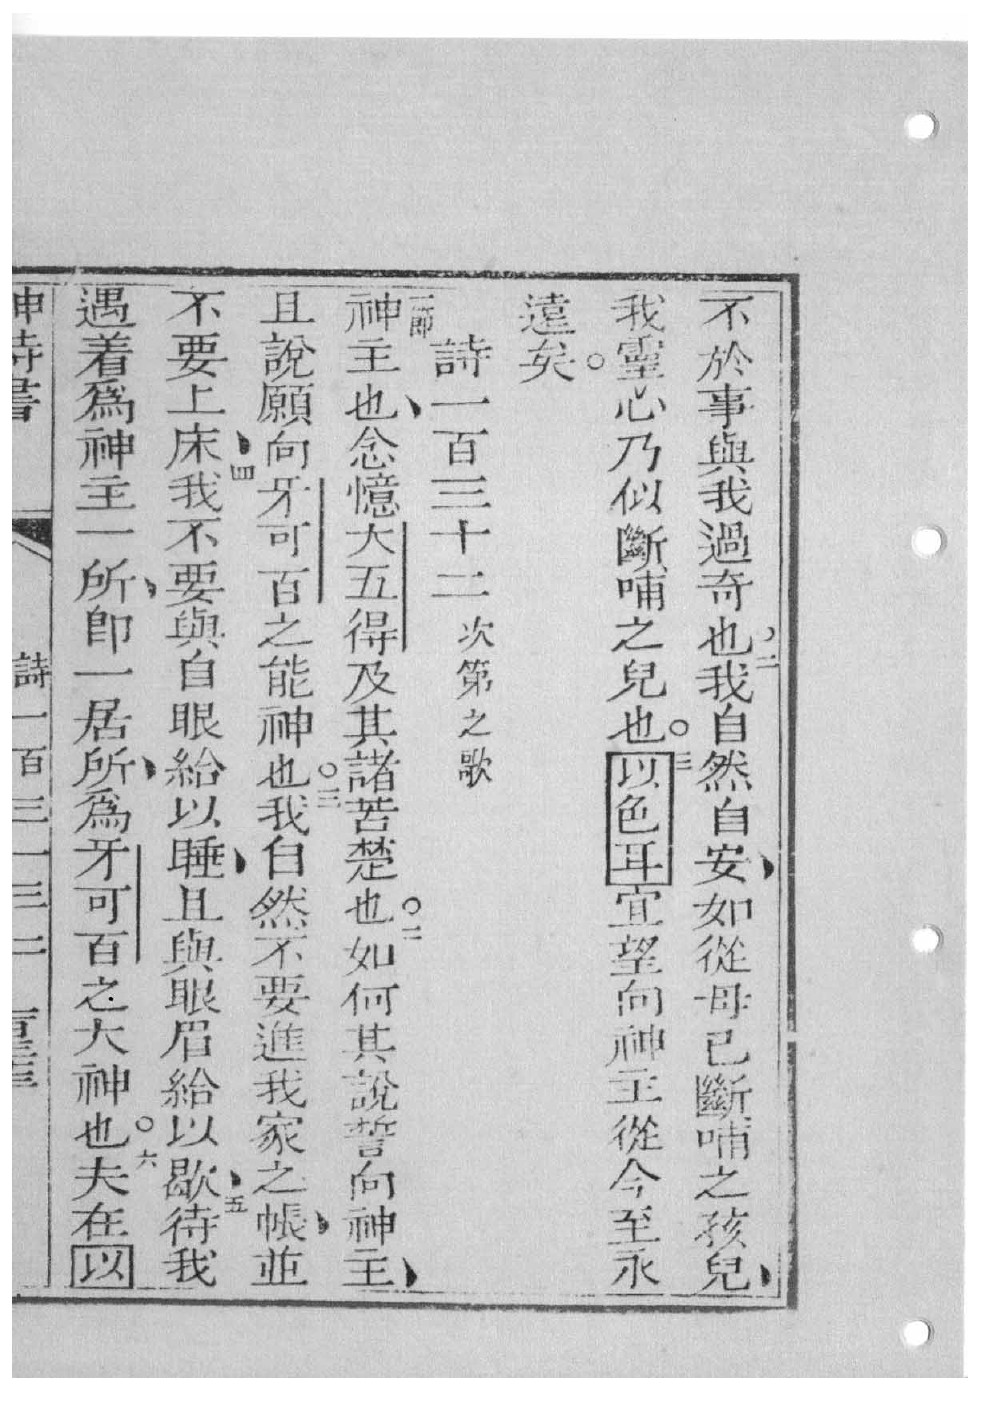 不於事與我過奇也、二我自然自安、如從母已斷哺之孩兒、
我靈心乃似斷哺之兒也。三以色耳宜望向神主從今至永
遠矣。
詩一百三十二 次第之歌
一節神主也、念憶大五得及其諸苦楚也。二如何其說誓向神主、
且說願向牙可百之能神也。三我自然不要進我家之帳、並
不要上床、四我不要與自眼給以睡、且與眼眉給以歇、五待我
遇着爲神主一所、即一居所、爲牙可百之大神也。六夫在以
神詩書 詩一百三一 三二